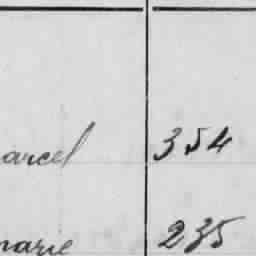 arcel 354
marie 235